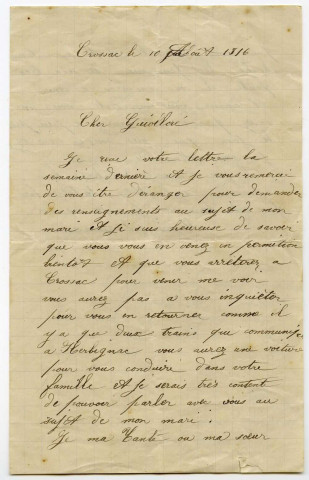 Crossac le 10 Août 1916
Cher Guédloié
Je reçu votre lettre la
semaine dernière et je vous remercie
de vous être déranger pour demander
des renseignements au sujet de mon
mari et je suis heureuse de savoir
que vous vous en venez en permition
bientôt et que vous arréterez a
Crossac pour vener me voir
vous aurez pas a vous inquiéter
pour vous en retourner comme il
y a que deux trains que communije
a Herbignac vous aurez une voiture
pour vous conduire dans votre
famille et je serais très content
de pouvoir parler avec vous au
sujet de mon mari.
Je ma tante ou ma sœur